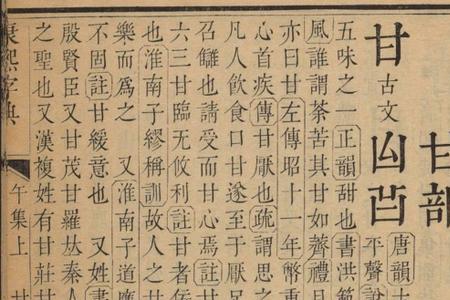 甘部
甘
古文
唐韻古
平聲說
五味之一正韻甜也書洪範
風誰謂荼苦其甘如薺禮
亦曰甘左傳昭十一年幣重
心首疾傳甘厭也疏謂思之
凡人飲食口甘遂至于厭足
召讎也請受而甘心焉註甘
六三甘臨无攸利註甘者佞
也淮南子繆稱訓故人之甘
樂而爲之　又淮南子道應
不固註甘緩意也　又姓書
殷賢臣又甘茂甘羅𠀤秦人
之聖也又漢複姓有甘莊甘
康熙字典　午集上　甘